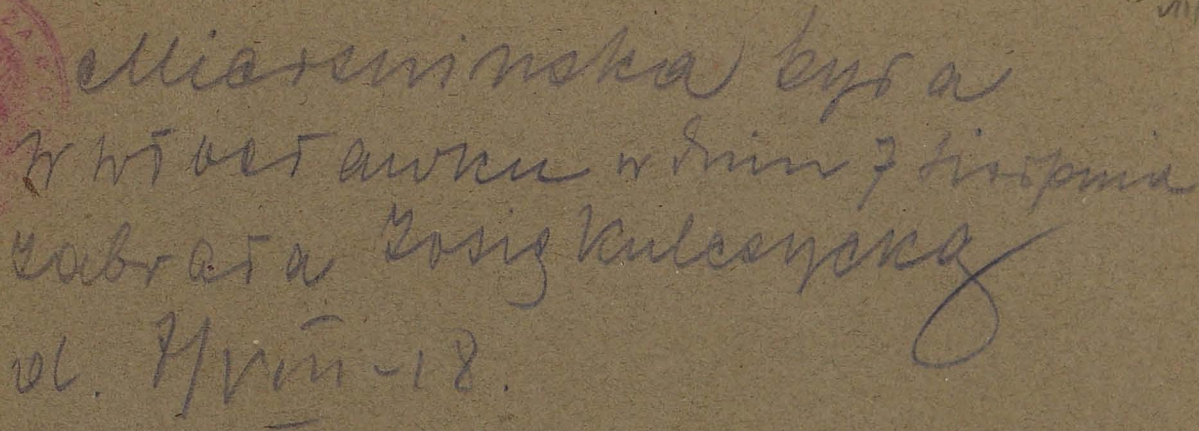 była
w Włocławku w dniu 7 Sierpnia
zabrała Zosię Kulczycką
d. 7/VIII-18.